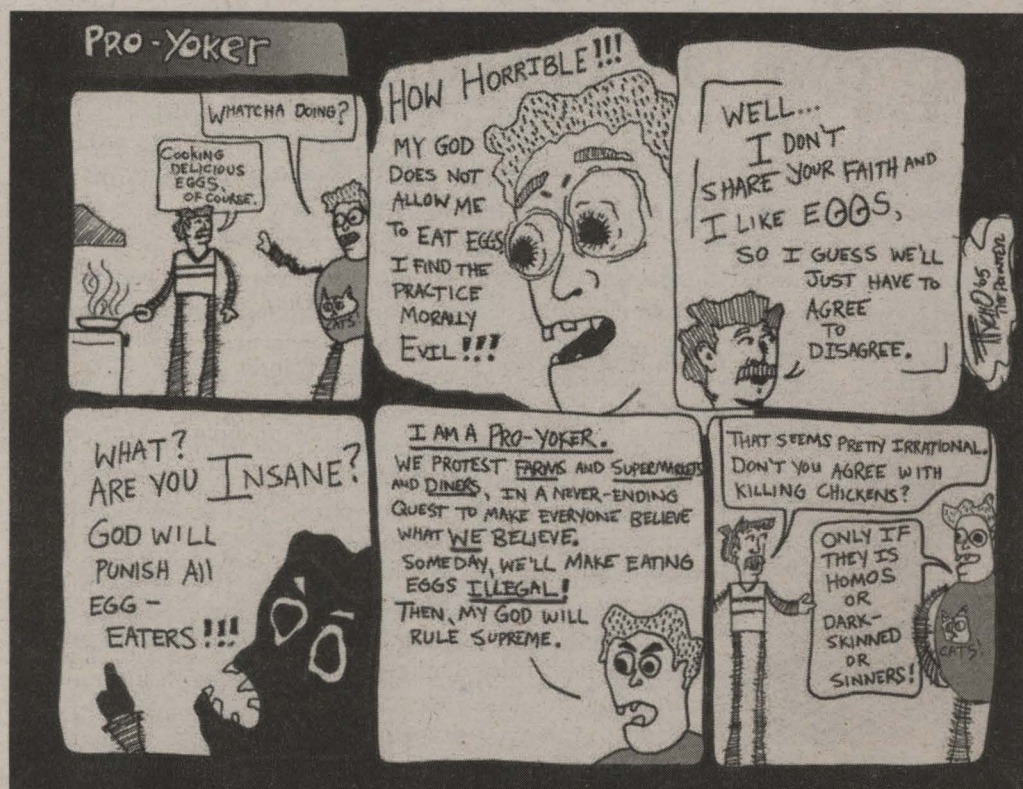 PRO-YOKER
WHATCHA DOING?
COOKING
DELICIOUS
EGGS,
OF COURSE.
CATS!
HOW HORRIBLE!!!
MY GOD
DOES NOT
ALLOW ME
TO EAT EGGS
I FIND THE
PRACTICE
MORALLY
EVIL!!!
WELL...
I DON'T
SHARE YOUR FAITH AND
I LIKE EGGS,
SO I GUESS WE'LL
JUST HAVE TO
AGREE
TO
DISAGREE.
'05
THE POINTER
WHAT?
ARE YOU INSANE?
GOD WILL
PUNISH All
EGG-
EATERS!!!
I AM A PRO-YOKER.
WE PROTEST FARMS AND SUPERMARKETS
AND DINERS, IN A NEVER-ENDING
QUEST TO MAKE EVERYONE BELIEVE
WHAT WE BELIEVE.
SOMEDAY, WE'LL MAKE EATING
EGGS ILLEGAL!
THEN, MY GOD WILL
RULE SUPREME.
THAT SEEMS PRETTY IRRATIONAL.
DON'T YOU AGREE WITH
KILLING CHICKENS?
ONLY IF
THEY IS
HOMOS
OR
DARK-
SKINNED
OR
SINNERS!
CATS!